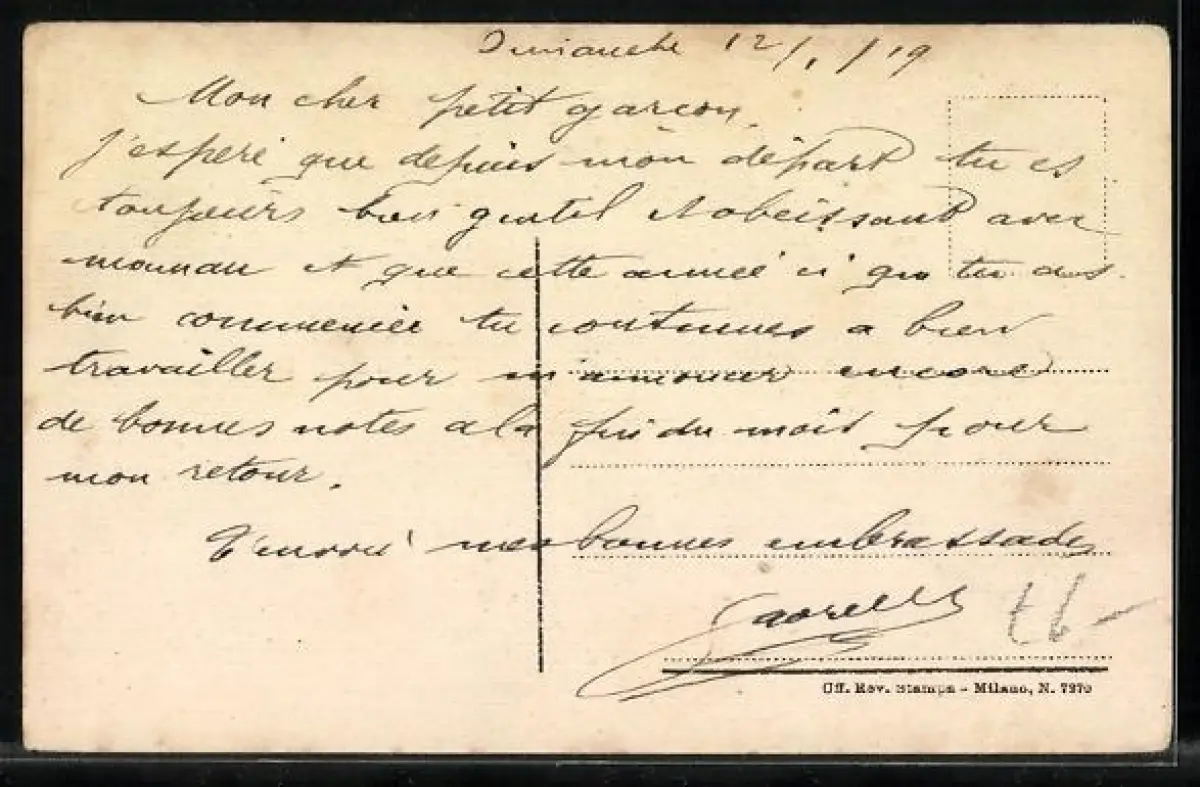 Dimanche 12/1/19
Mon cher petit garcon,
J'espère que depuis mon départ tu es
toujours bien gentil et obeissant avec
maman et que cette année ci que tu as
bien commencée tu continues a bien
travailler pour m'annoncer encore
de bonnes notes a la fin du mois pour
mon retour.
T'envoie mes bonnes embrassades
Uff. Rev. Stampa - Milano, N. 7970